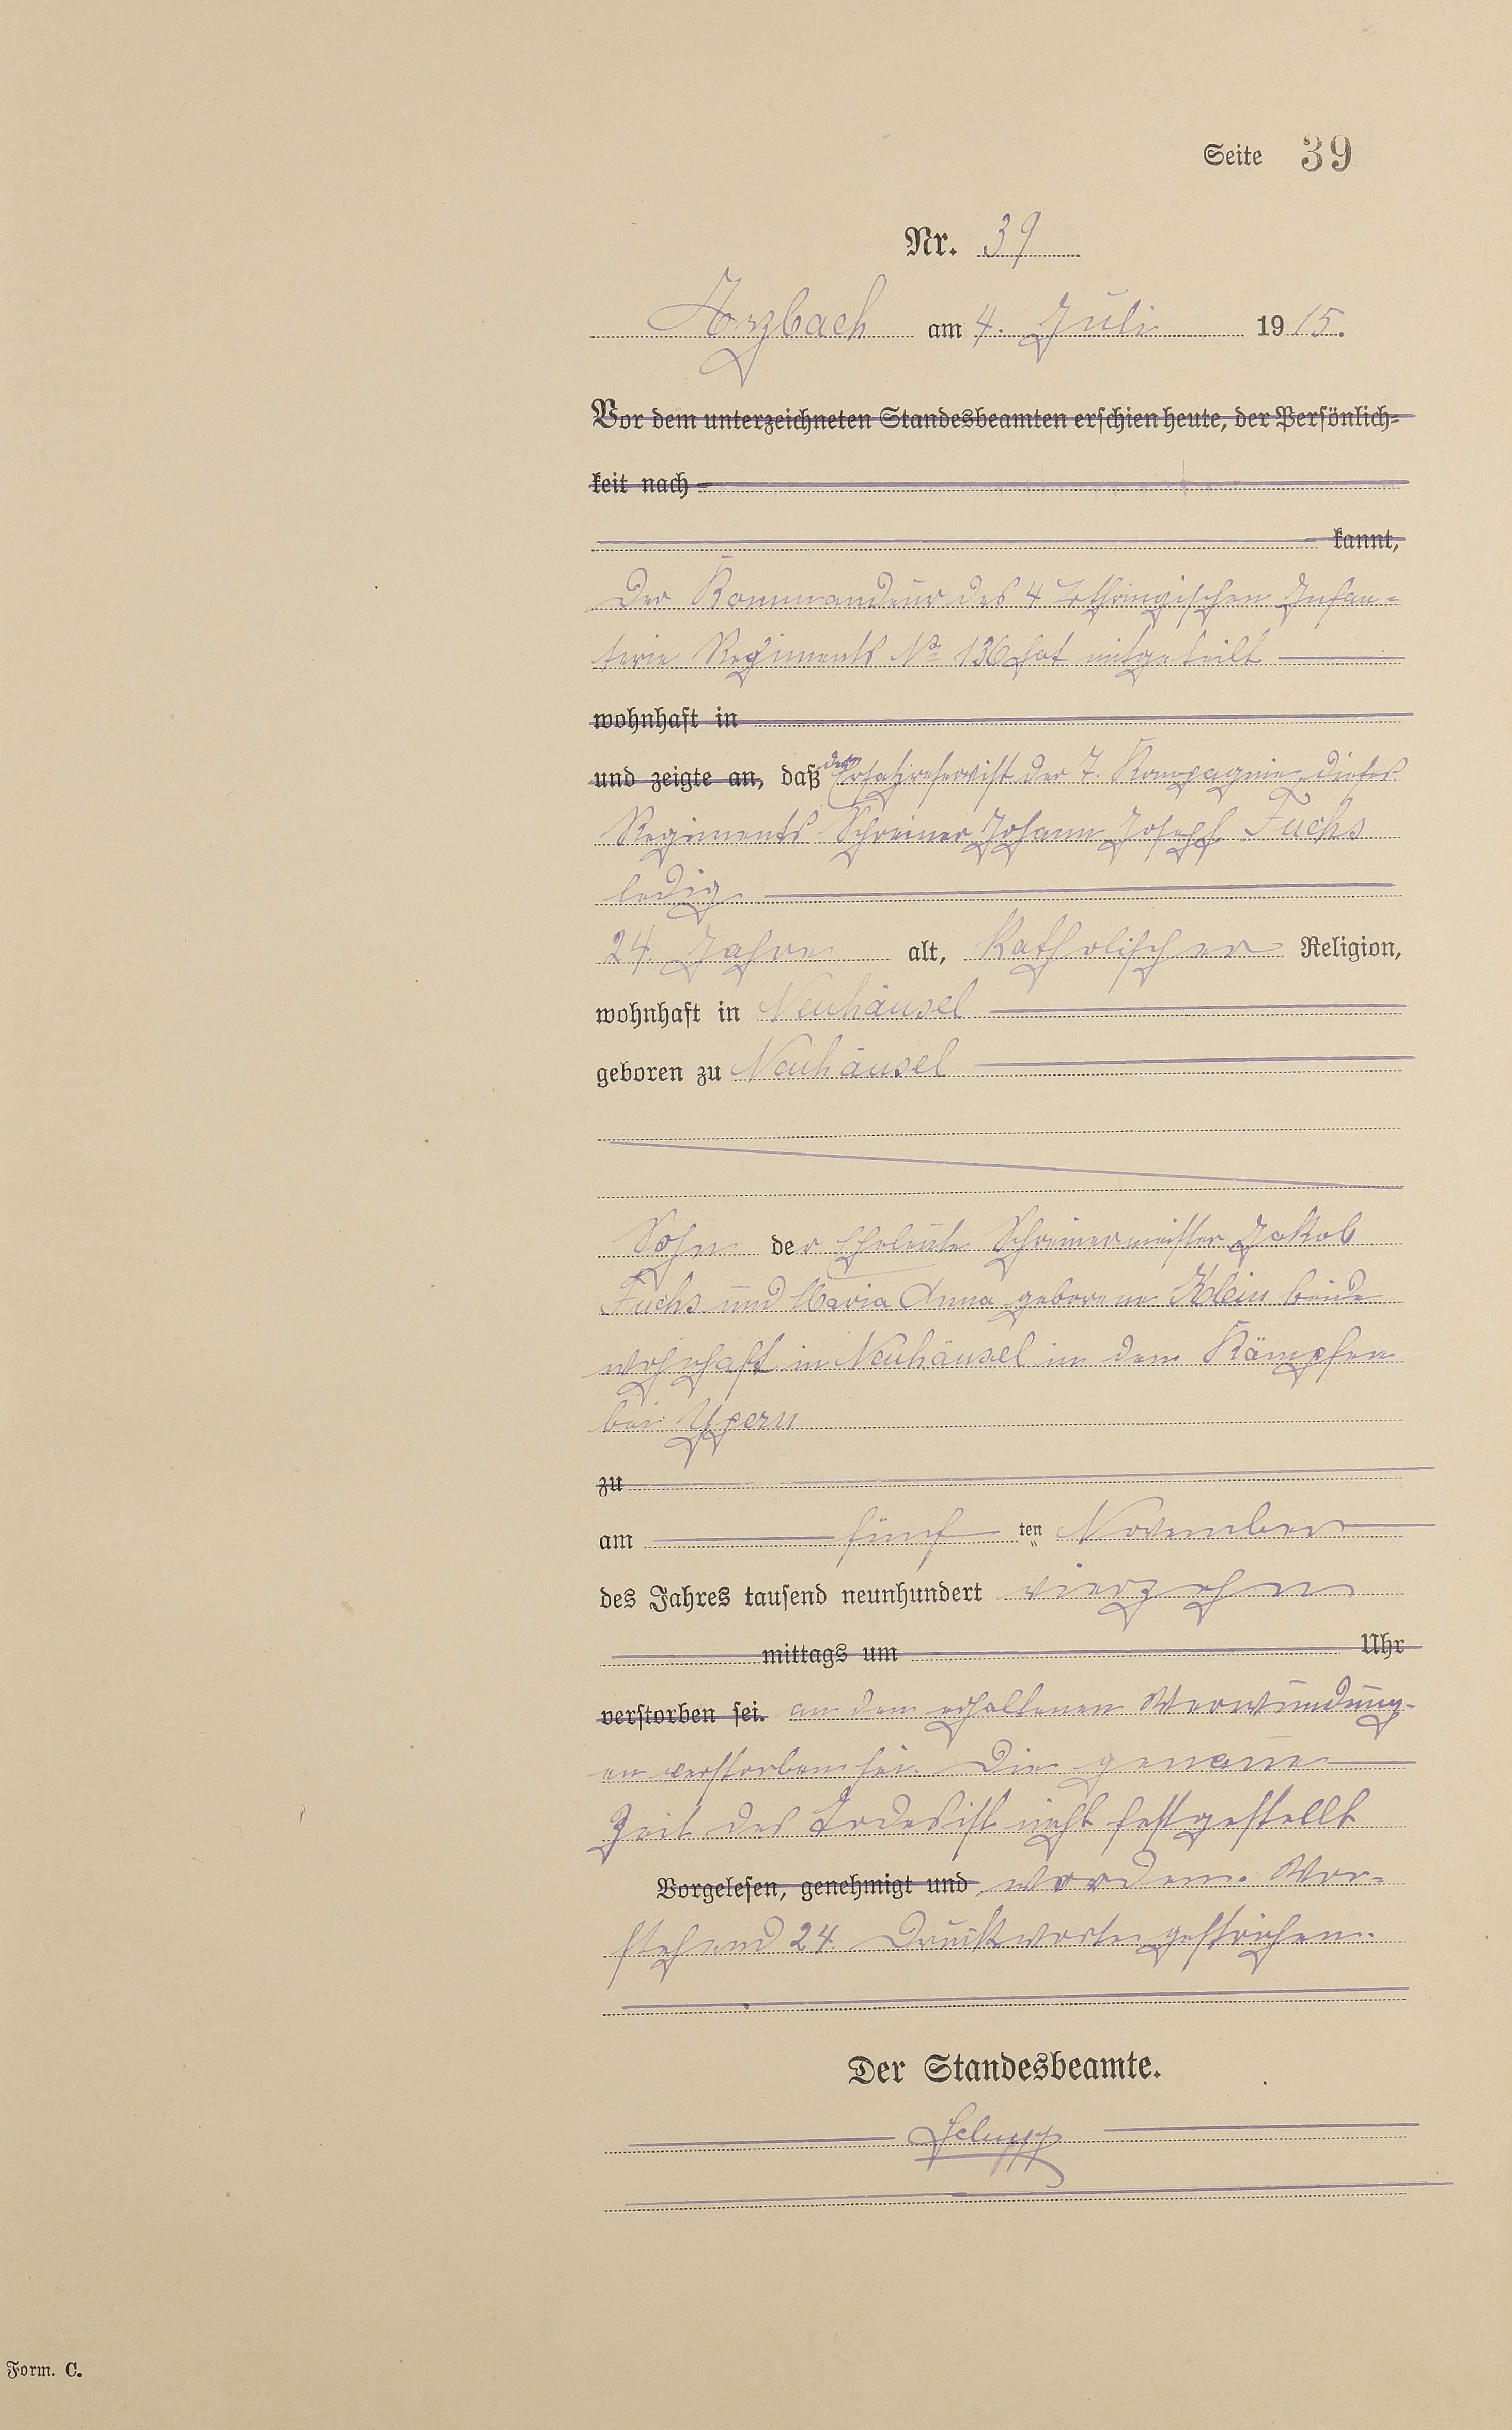 Seite 39
Nr. 39
Arzbach am 4. Juli 1915.
Vor dem unterzeichneten Standesbeamten erschien heute, der Persönlich-
keit nach
kannt,
Der Kommandeur des 4 Lothringischen Infan-
terie Regiments No 136 hat mitgeteilt
wohnhaft in
und zeigte an, daß der Ersatzreservist der 7. Kompagnie dieses
Regiments Schreiner Johann Joseph Fuchs
ledig
24 Jahre alt, Katholischer Religion,
wohnhaft in Neuhäusel
geboren zu Neuhäusel
Sohn der Eheleute Schreinermeister Jakob
Fuchs und Maria Anna geborene Klein beide
wohnhaft in Neuhäusel in den Kämpfen
bei Ypern
zu
am fünf ten November
des Jahres tausend neunhundert vierzehn
mittags um Uhr
verstorben sei. an den erhaltenen Verwundung-
en verstorben sei. Die genaue
Zeit des Todes ist nicht festgestellt
Vorgelesen, genehmigt und worden. Vor-
stehend 24. Druckworte gestrichen.
Der Standesbeamte.
Schupp
Form. C.